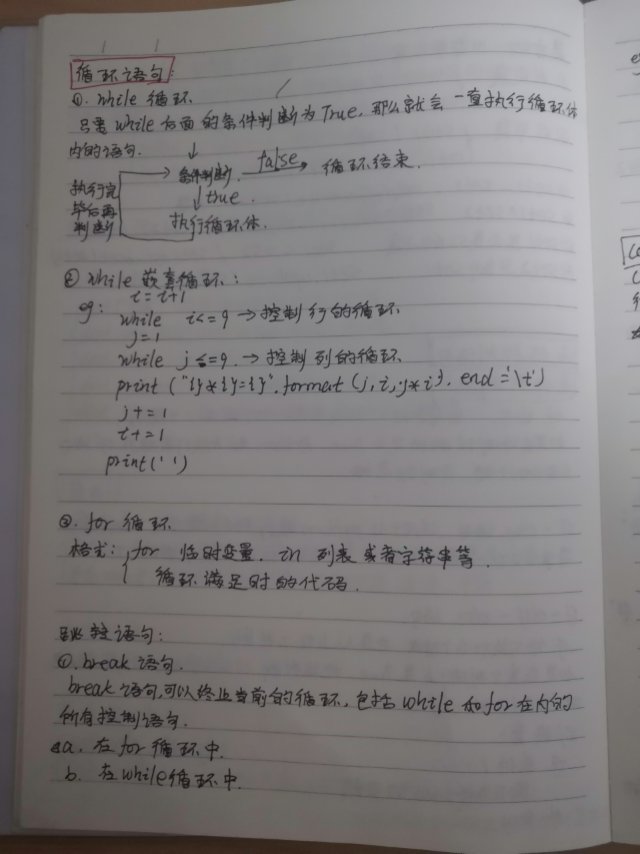 循环语句:
①. while 循环.
只要 while 后面的条件判断为 True, 那么就会一直执行循环体
内的语句.
条件判断 false 循环结束.
执行完
毕后再
判断
true.
执行循环体.
② while 嵌套循环:
i=i+1
eg: while i<=9 → 控制行的循环.
j=1
while j<=9. → 控制列的循环.
print ("{}*{}={}".format (j,i,j*i), end='\t')
j+=1
i+=1
print(' ')
③. for 循环.
格式: for 临时变量. in 列表或者字符串等.
循环满足时的代码.
跳转语句:
①.break 语句.
break 语句,可以终止当前的循环,包括 while 和 for 在内的
所有控制语句.
a. 在 for 循环中.
b. 在 while 循环中.